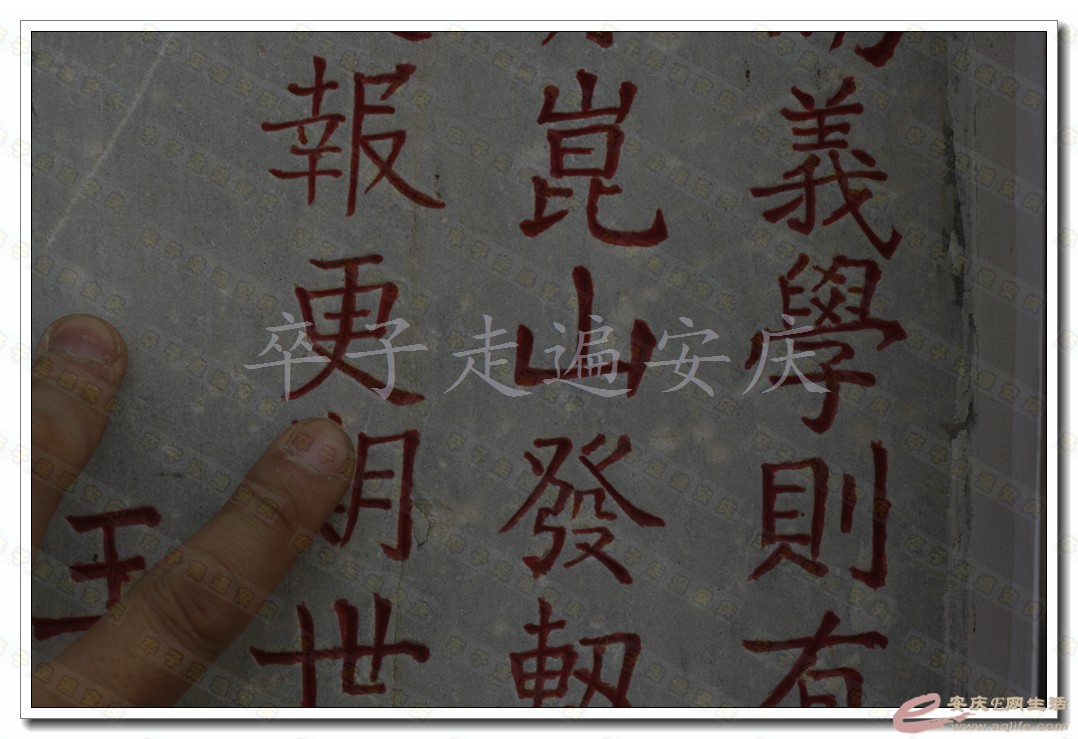 義學則有
崑山發軔
報更世
卒子走遍安庆
安庆E网生活
www.aqlife.com